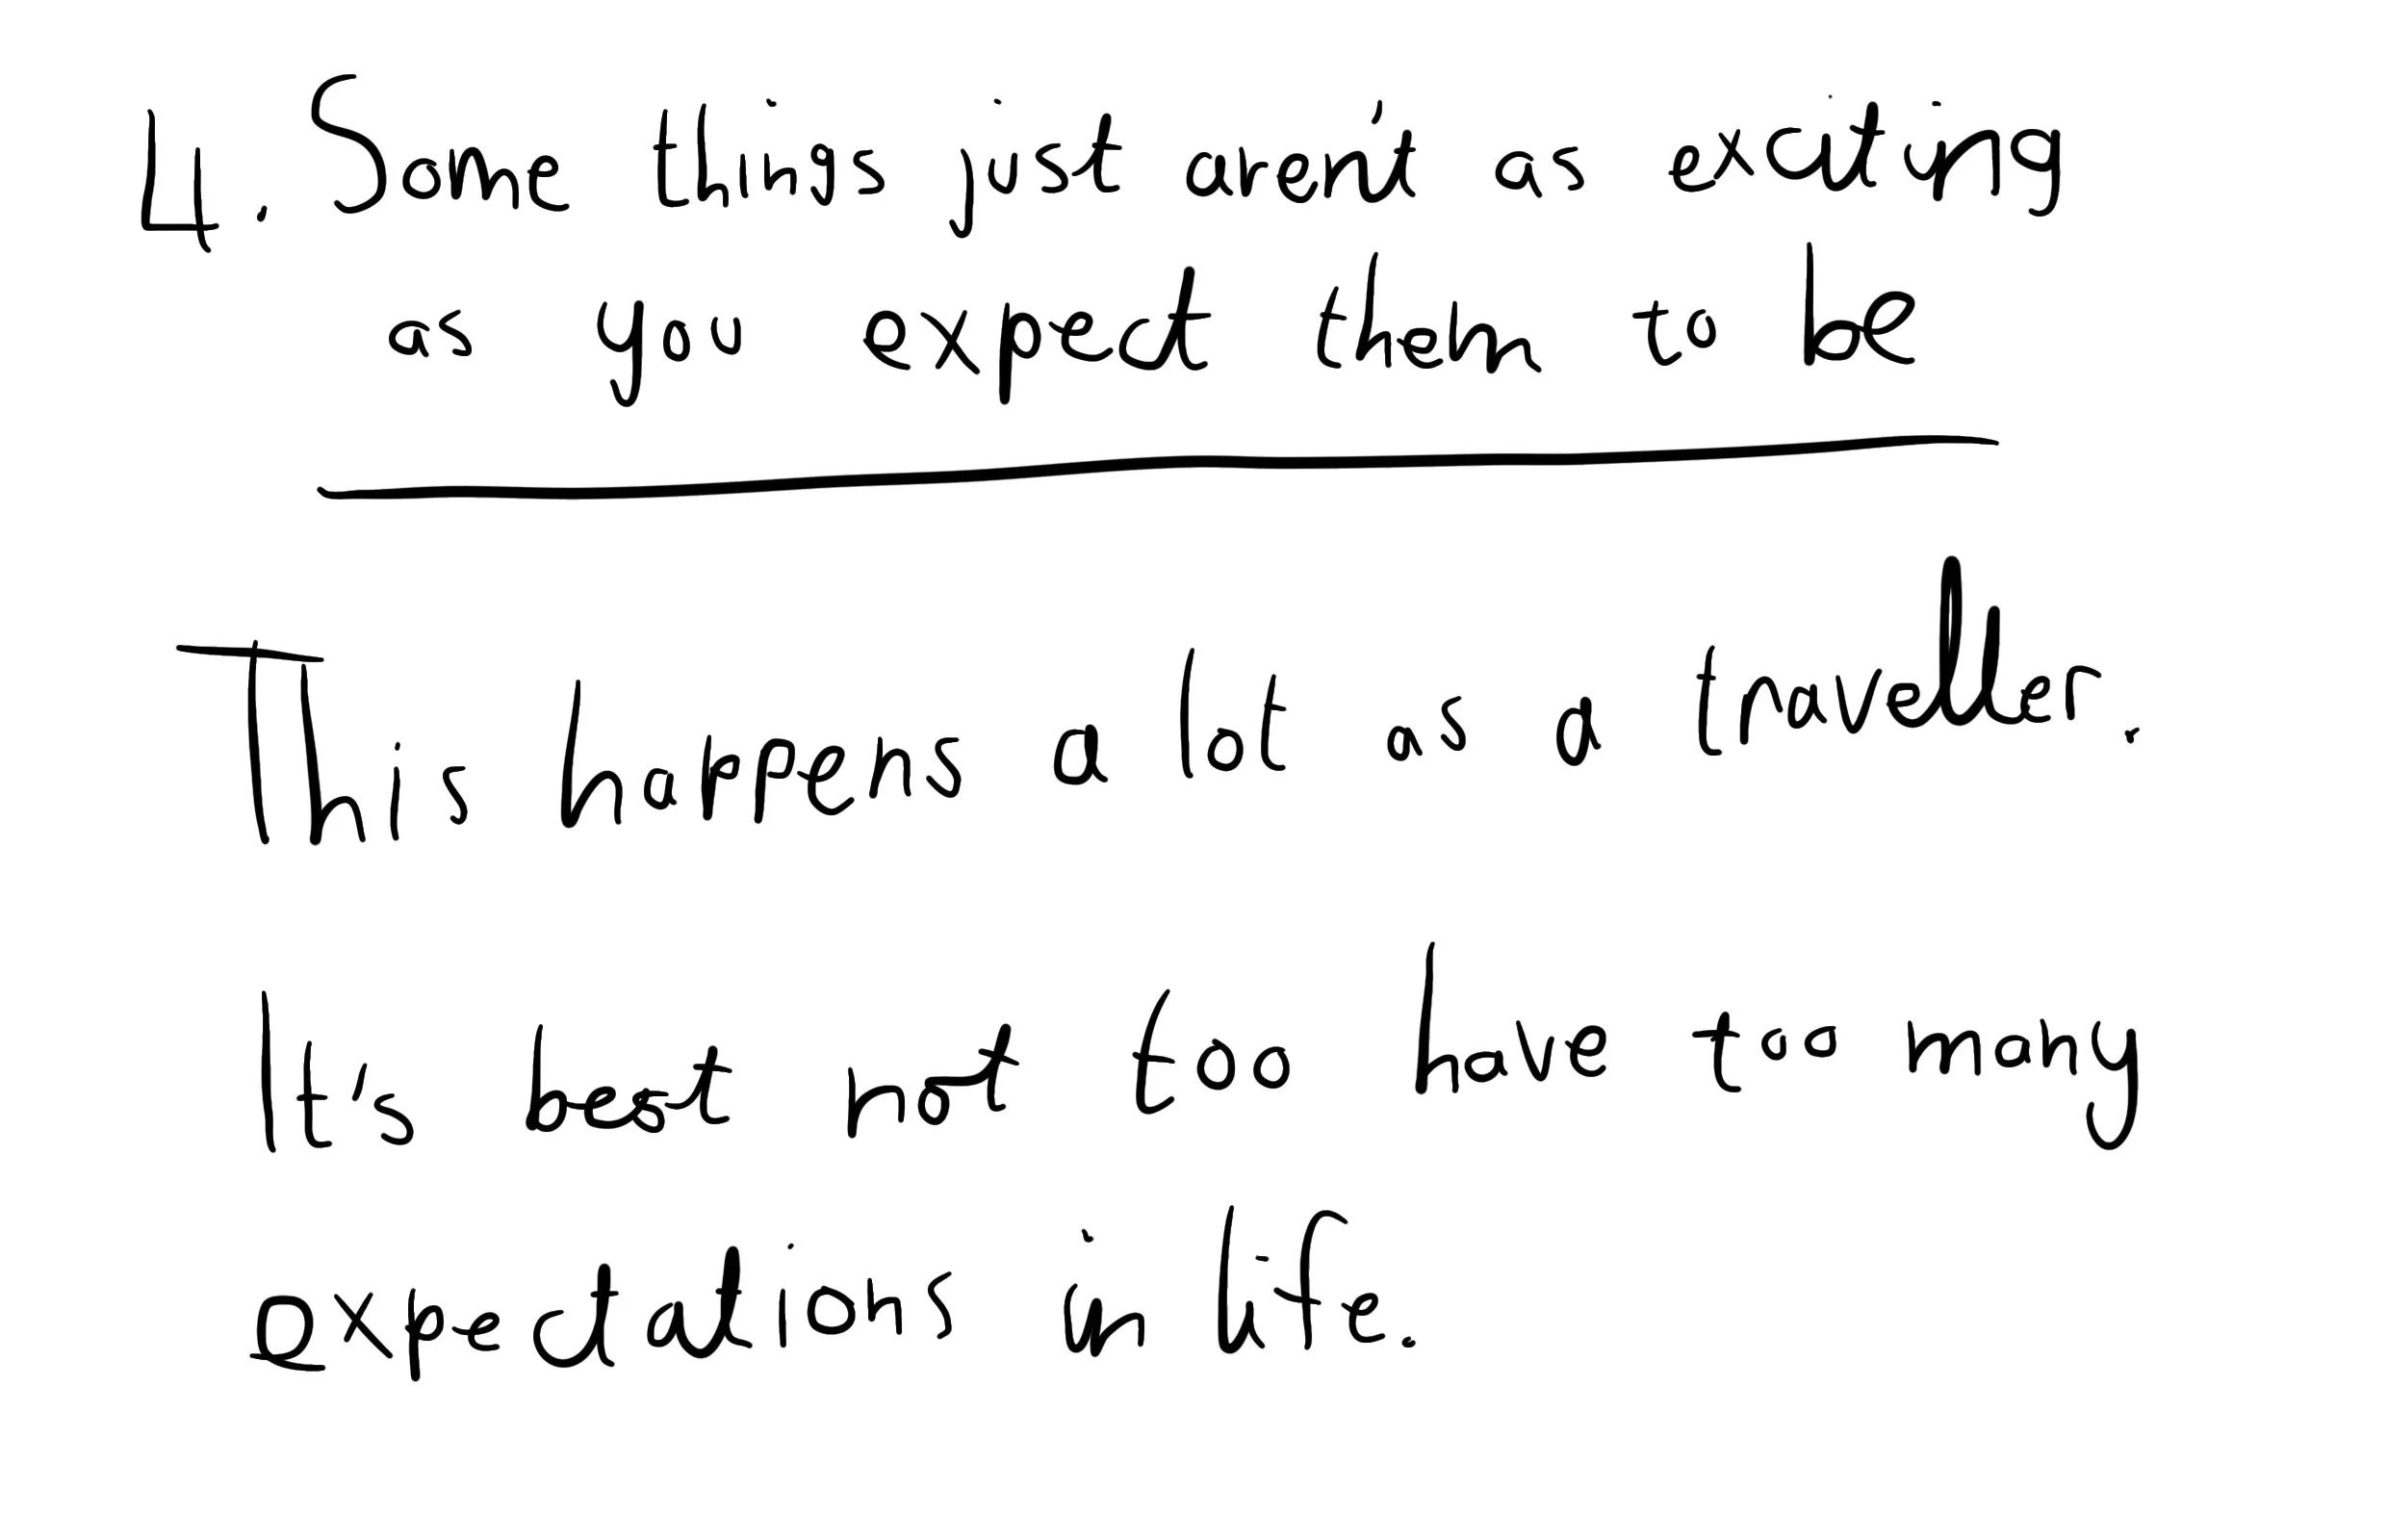 4. Some things just aren't as exciting
as you expect them to be
This happens a lot as a traveller.
It's best not too have too many
expectations in life.